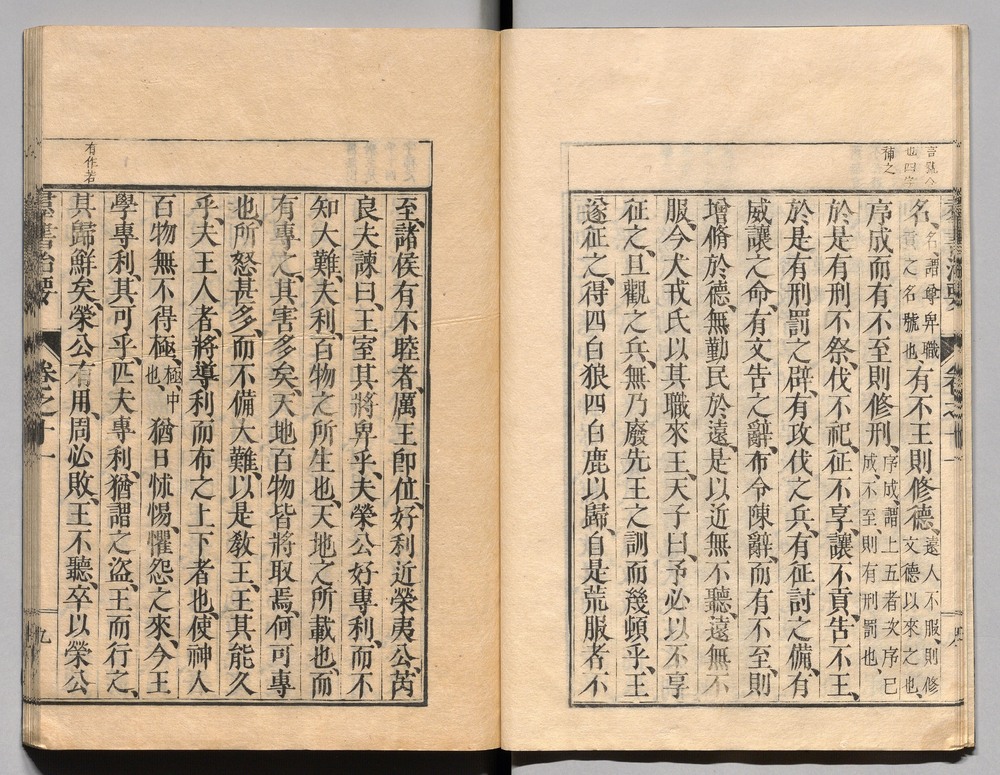 補之
名、名、謂尊卑職貢之名號也、有不王則修德、遠人不服、則修文德以來之也、
序成而有不至則修刑、序成、謂上五者次序已成、不至、則有刑罰也、
於是有刑不祭、伐不祀、征不享、讓不貢、告不王、
於是有刑罰之辟、有攻伐之兵、有征討之備、有
威讓之命、有文告之辭、布令陳辭、而有不至、則
增脩於德、無勤民於遠、是以近無不聽、遠無不
服、今犬戎氏以其職來王、天子曰、予必以不享
征之、且觀之兵、無乃廢先王之訓而幾頓乎、王
遂征之、得四白狼四白鹿以歸、自是荒服者不
至、諸侯有不睦者、厲王卽位、好利近榮夷公、芮
良夫諫曰、王室其將卑乎、夫榮公好專利、而不
知大難、夫利、百物之所生也、天地之所載也、而
有專之、其害多矣、天地百物皆將取焉、何可專
也、所怒甚多、而不備大難、以是敎王、王其能久
乎、夫王人者、將導利而布之上下者也、使神人
百物無不得極、極、中也、猶日怵惕、懼怨之來、今王
學專利、其可乎、匹夫專利、猶謂之盜、王而行之、
其歸鮮矣、榮公有用、周必敗、王不聽、卒以榮公
有作若
羣書治要 卷之十一 九